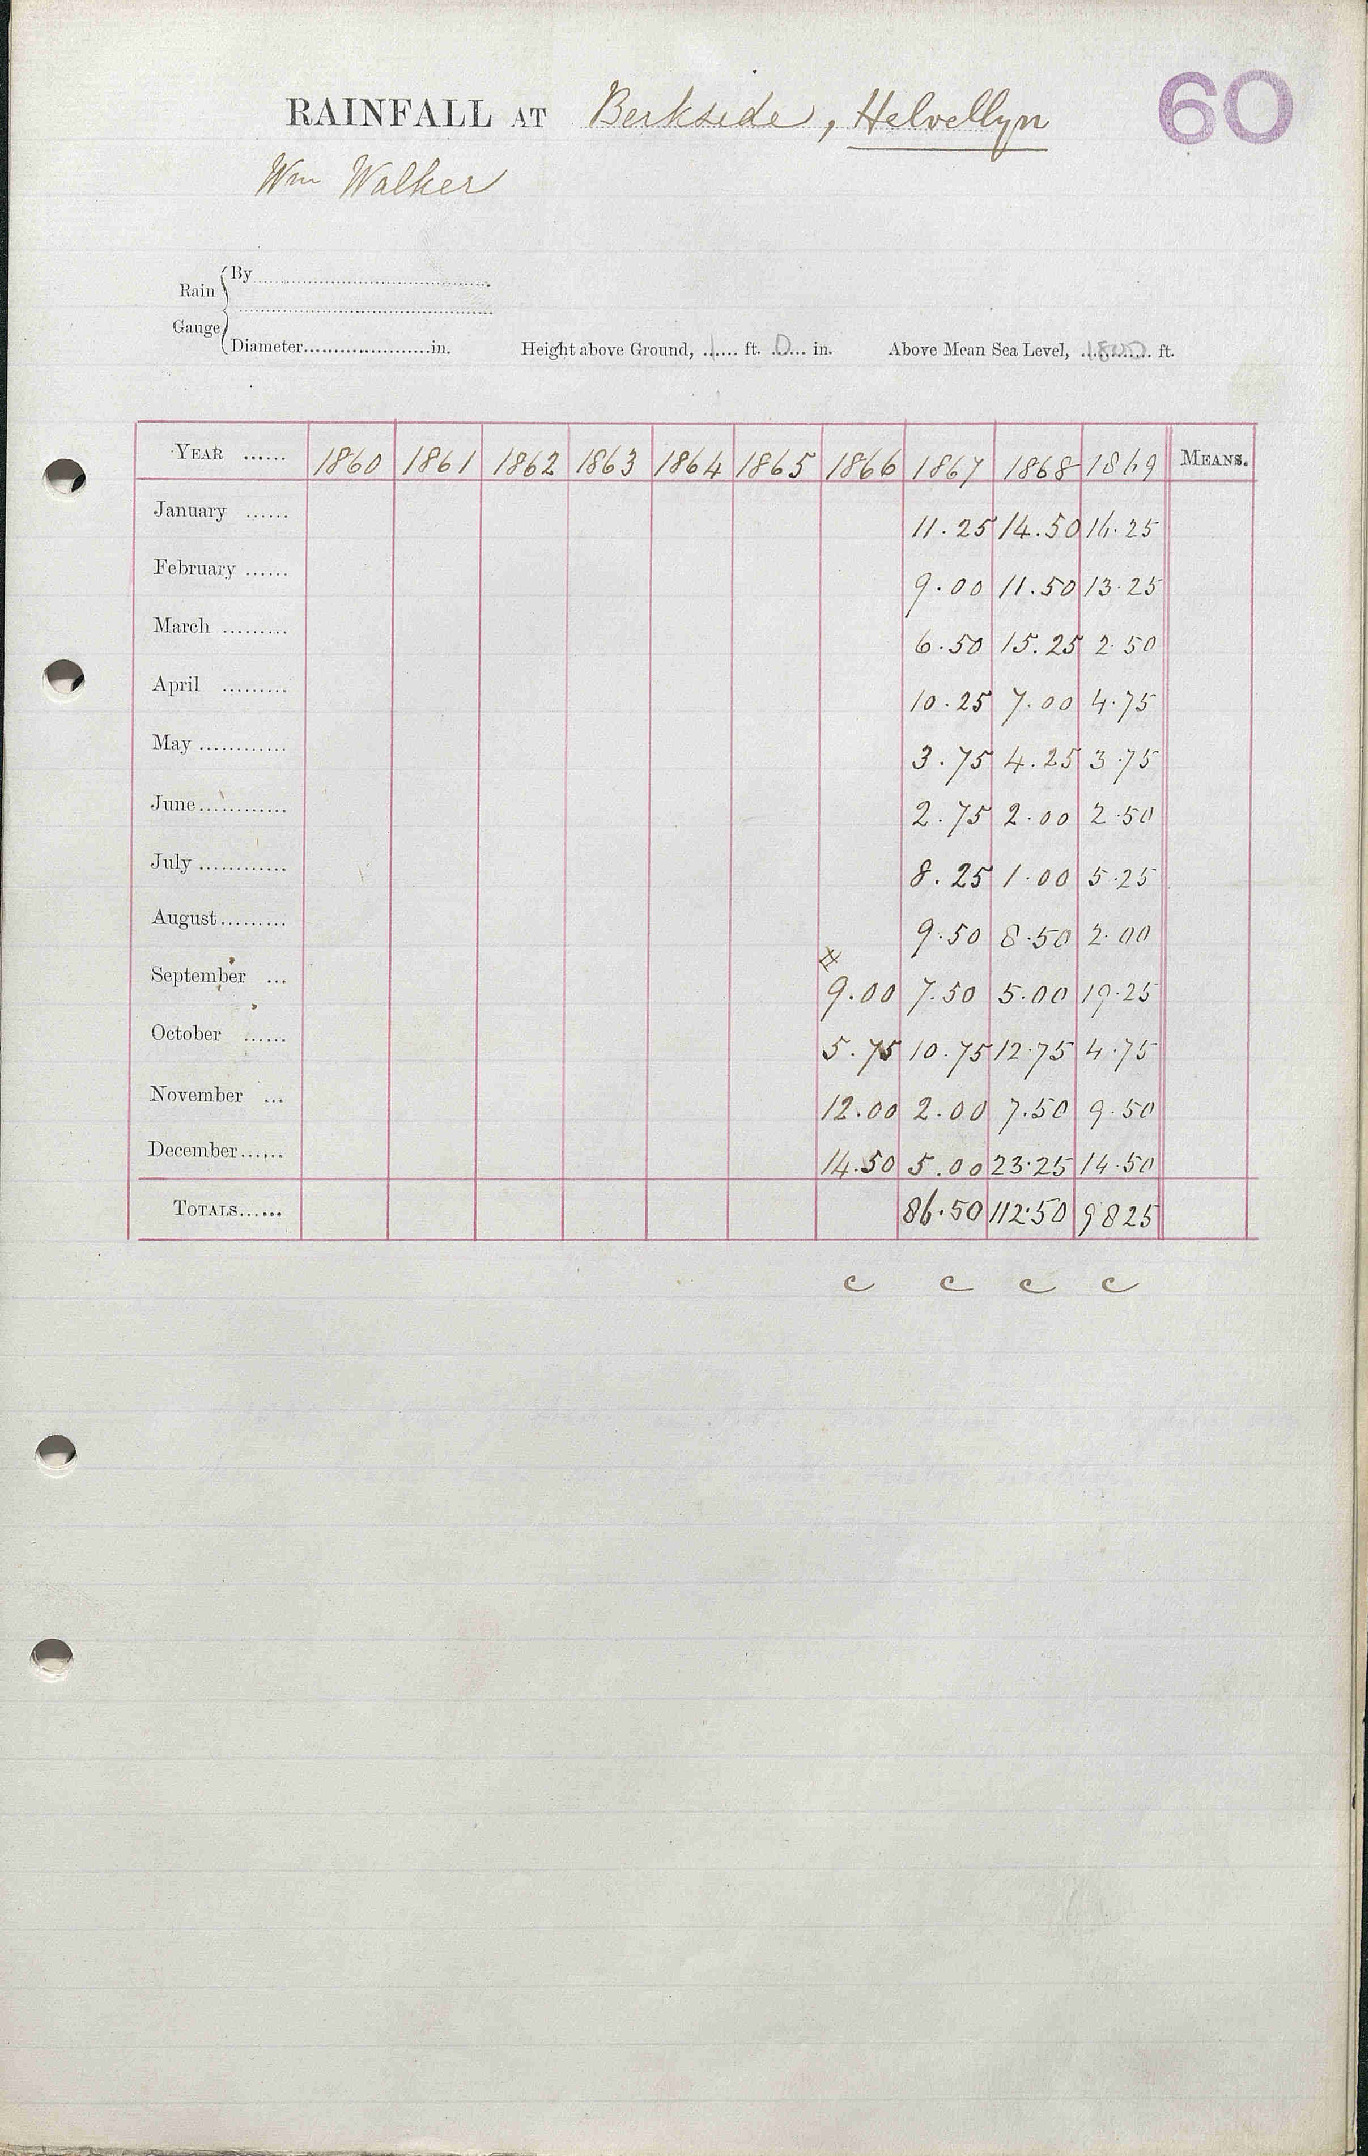 60
RAINFALL AT Berkside, Helvellyn
Wm Walker
Rain Gauge
By
Diameter in. Height above Ground, 1 ft. 0 in. Above Mean Sea Level, ft.
YEAR 1860 1861 1862 1863 1864 1865 1866 1867 1868 1869 MEANS.
January 11.25 14.50 16.25
February 9.00 11.50 13.25
March 6.50 15.25 2.50
April 10.25 7.00 4.75
May 3.75 4.25 3.75
June 2.75 2.00 2.50
July 8.25 1.00 5.25
August 9.50 8.50 2.00
September 9.00 7.50 5.00 19.25
October 5.75 10.75 12.75 4.75
November 12.00 2.00 7.50 9.50
December 14.50 5.00 23.25 14.50
TOTALS 86.50 112.50 98 25
c c c c